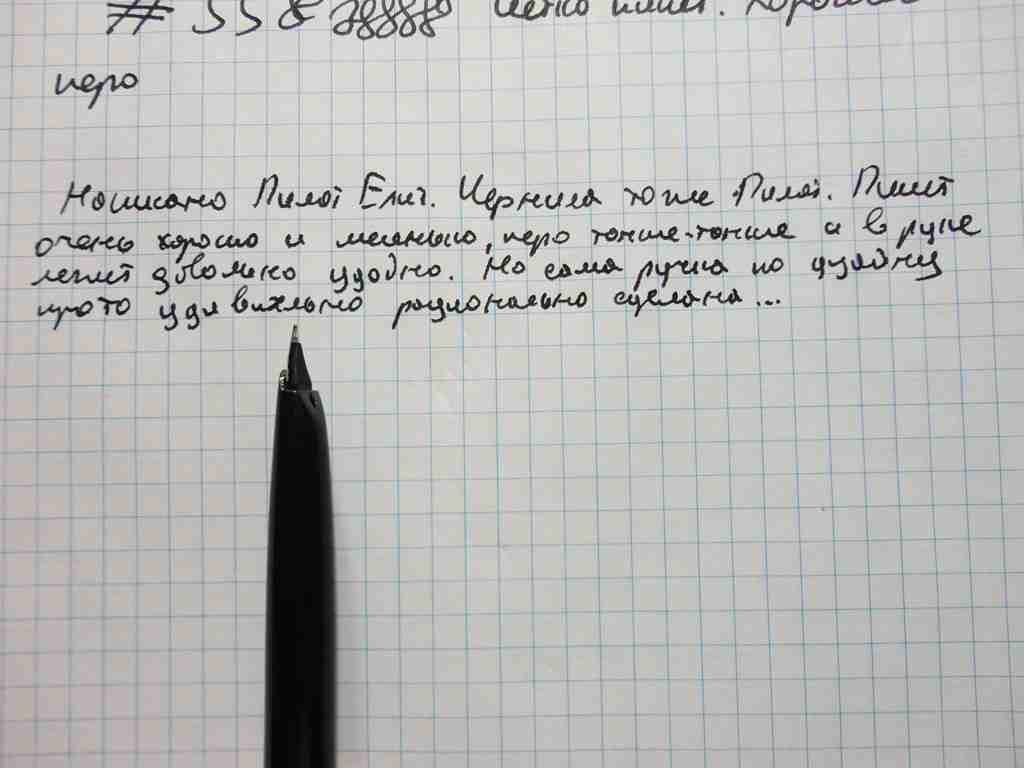 # 33 & 88888 Мягко пишет. Хорошее
перо
Написано Пилот Елит. Чернила тоже Пилот. Пишет
очень хорошо и меленько, перо тонкое-тонкое и в руке
лежит довольно удобно. Но сама ручка по дизайну
просто удивительно рационально сделана...